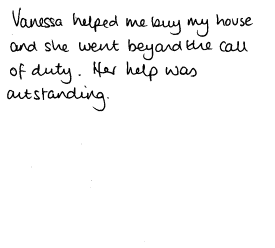 Vanessa helped me buy my house
and she went beyond the call
of duty. Her help was
outstanding.